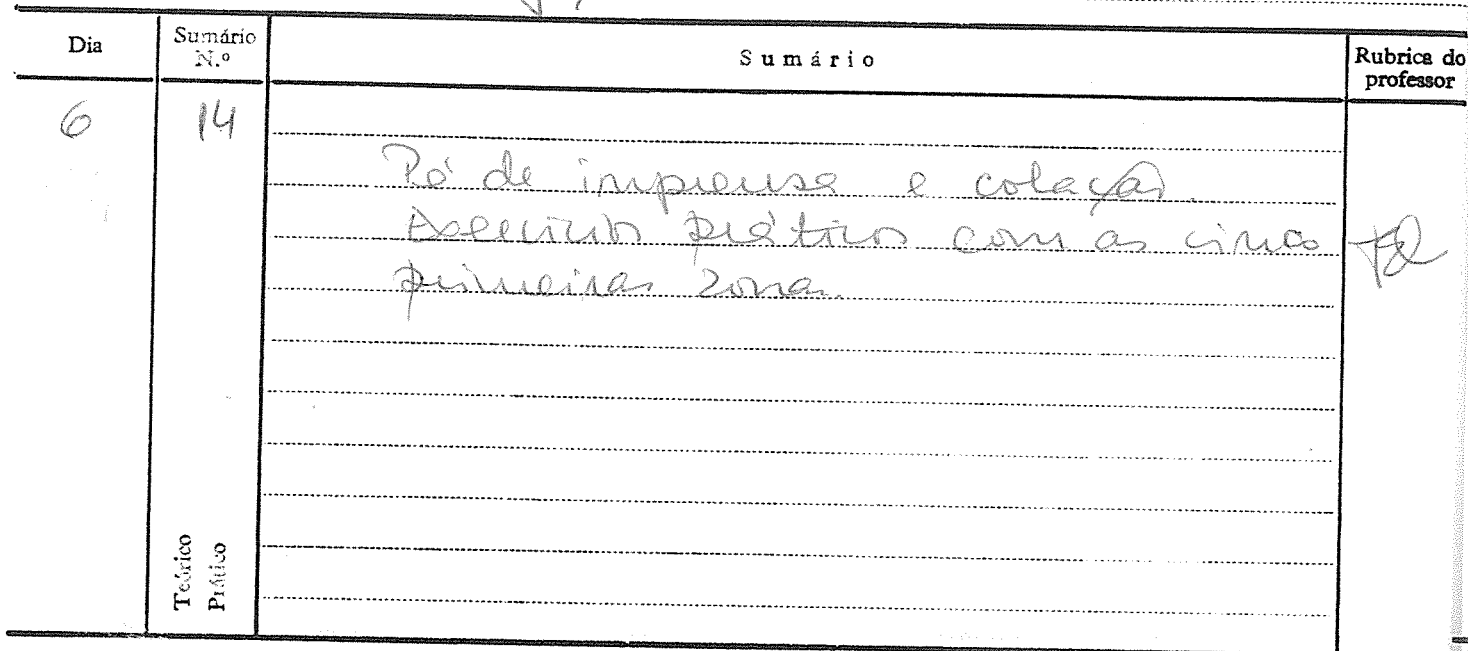 Dia
Sumário N.º
Sumário
Rubrica do professor
6
14
Pó de imprensa e colação.
Exercícios práticos com as cinco
primeiras zonas.
Teórico
Prático